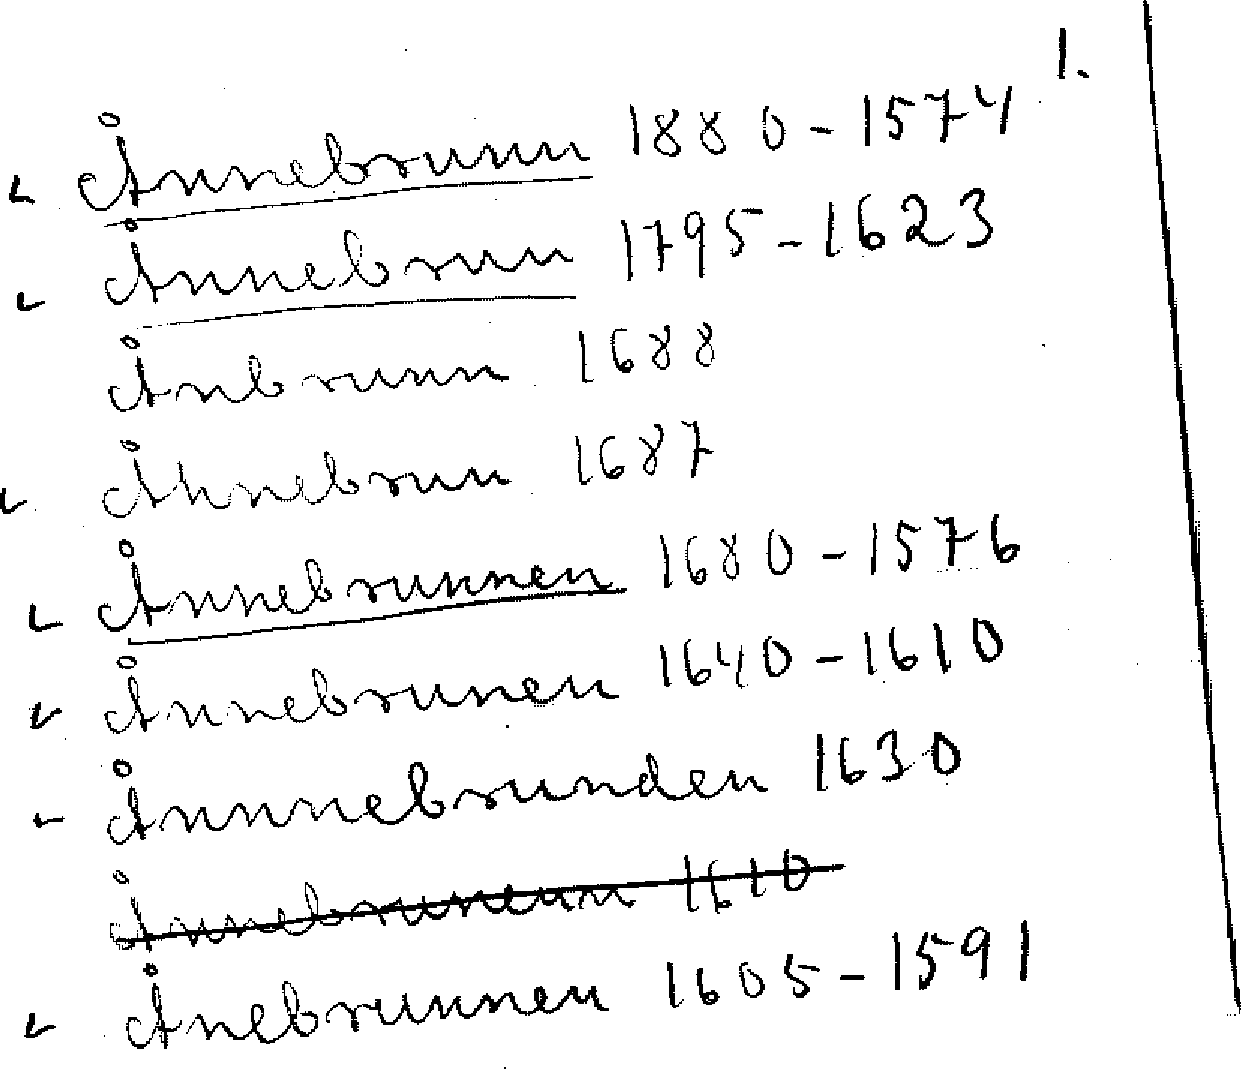 1.
Ånnebrunn 1880-1574
Ånnebrunn 1795-1623
Ånbrunn 1688
Åhnebrun 1687
Ånnebrunnen 1680-1576
Ånnebrunen 1640-1610
Ånnnebrunden 1630
Ånnebrunenn 1610
Ånebrunnen 1605-1591